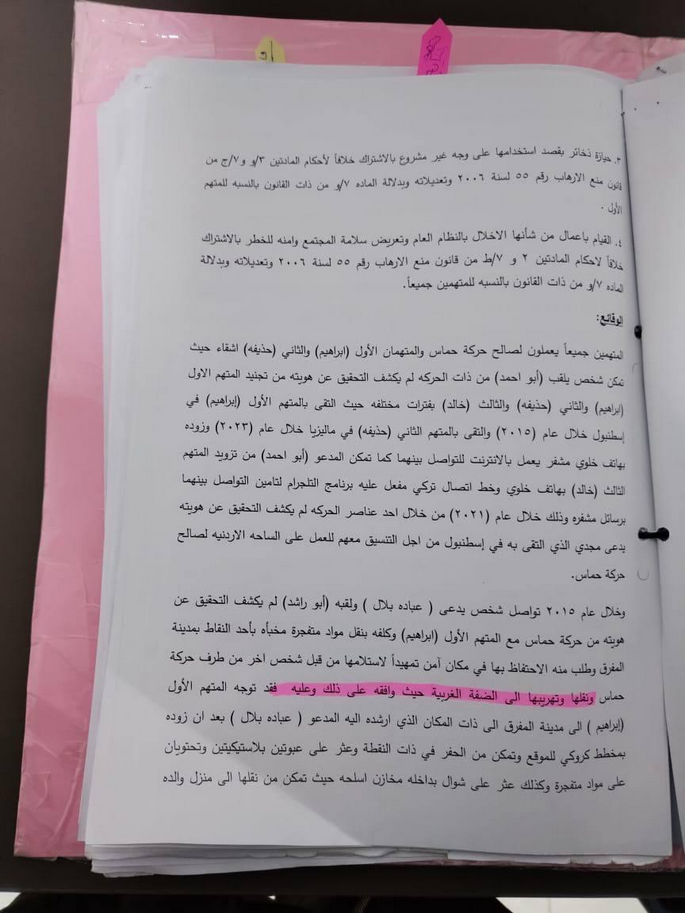 ٣. حيازة ذخائر بقصد استخدامها على وجه غير مشروع بالاشتراك خلافاً لأحكام المادتين ٣/و و ٧/ج من
قانون منع الارهاب رقم ٥٥ لسنة ٢٠٠٦ وتعديلاته وبدلالة الماده ٧/و من ذات القانون بالنسبه للمتهم
الأول .
٤. القيام باعمال من شأنها الاخلال بالنظام العام وتعريض سلامة المجتمع وامنه للخطر بالاشتراك
خلافاً لاحكام المادتين ٢ و ٧/ط من قانون منع الارهاب رقم ٥٥ لسنة ٢٠٠٦ وتعديلاته وبدلالة
الماده ٧/و من ذات القانون بالنسبه للمتهمين جميعاً.
الوقائع:
المتهمين جميعاً يعملون لصالح حركة حماس والمتهمان الأول (ابراهيم) والثاني (حذيفه) اشقاء حيث
تمكن شخص يلقب (أبو احمد) من ذات الحركه لم يكشف التحقيق عن هويته من تجنيد المتهم الاول
(ابراهيم) والثاني (حذيفه) والثالث (خالد) بفترات مختلفه حيث التقى بالمتهم الأول (إبراهيم) في
إسطنبول خلال عام (٢٠١٥) والتقى بالمتهم الثاني (حذيفه) في ماليزيا خلال عام (٢٠٢٣) وزوده
بهاتف خلوي مشفر يعمل بالانترنت للتواصل بينهما كما تمكن المدعو (أبو احمد) من تزويد المتهم
الثالث (خالد) بهاتف خلوي وخط اتصال تركي مفعل عليه برنامج التلجرام لتامين التواصل بينهما
برسائل مشفره وذلك خلال عام (٢٠٢١) من خلال احد عناصر الحركه لم يكشف التحقيق عن هويته
يدعى مجدي الذي التقى به في إسطنبول من اجل التنسيق معهم للعمل على الساحه الاردنيه لصالح
حركة حماس.
وخلال عام ٢٠١٥ تواصل شخص يدعى ( عباده بلال ) ولقبه (أبو راشد) لم يكشف التحقيق عن
هويته من حركة حماس مع المتهم الأول (ابراهيم) وكلفه بنقل مواد متفجرة مخبأه بأحد النقاط بمدينة
المفرق وطلب منه الاحتفاظ بها في مكان آمن تمهيداً لاستلامها من قبل شخص اخر من طرف حركة
حماس ونقلها وتهريبها الى الضفة الغربية حيث وافقه على ذلك وعليه فقد توجه المتهم الأول
(إبراهيم ) الى مدينة المفرق الى ذات المكان الذي ارشده اليه المدعو ( عباده بلال ) بعد ان زوده
بمخطط كروكي للموقع وتمكن من الحفر في ذات النقطة وعثر على عبوتين بلاستيكيتين وتحتويان
على مواد متفجرة وكذلك عثر على شوال بداخله مخازن اسلحه حيث تمكن من نقلها الى منزل والده